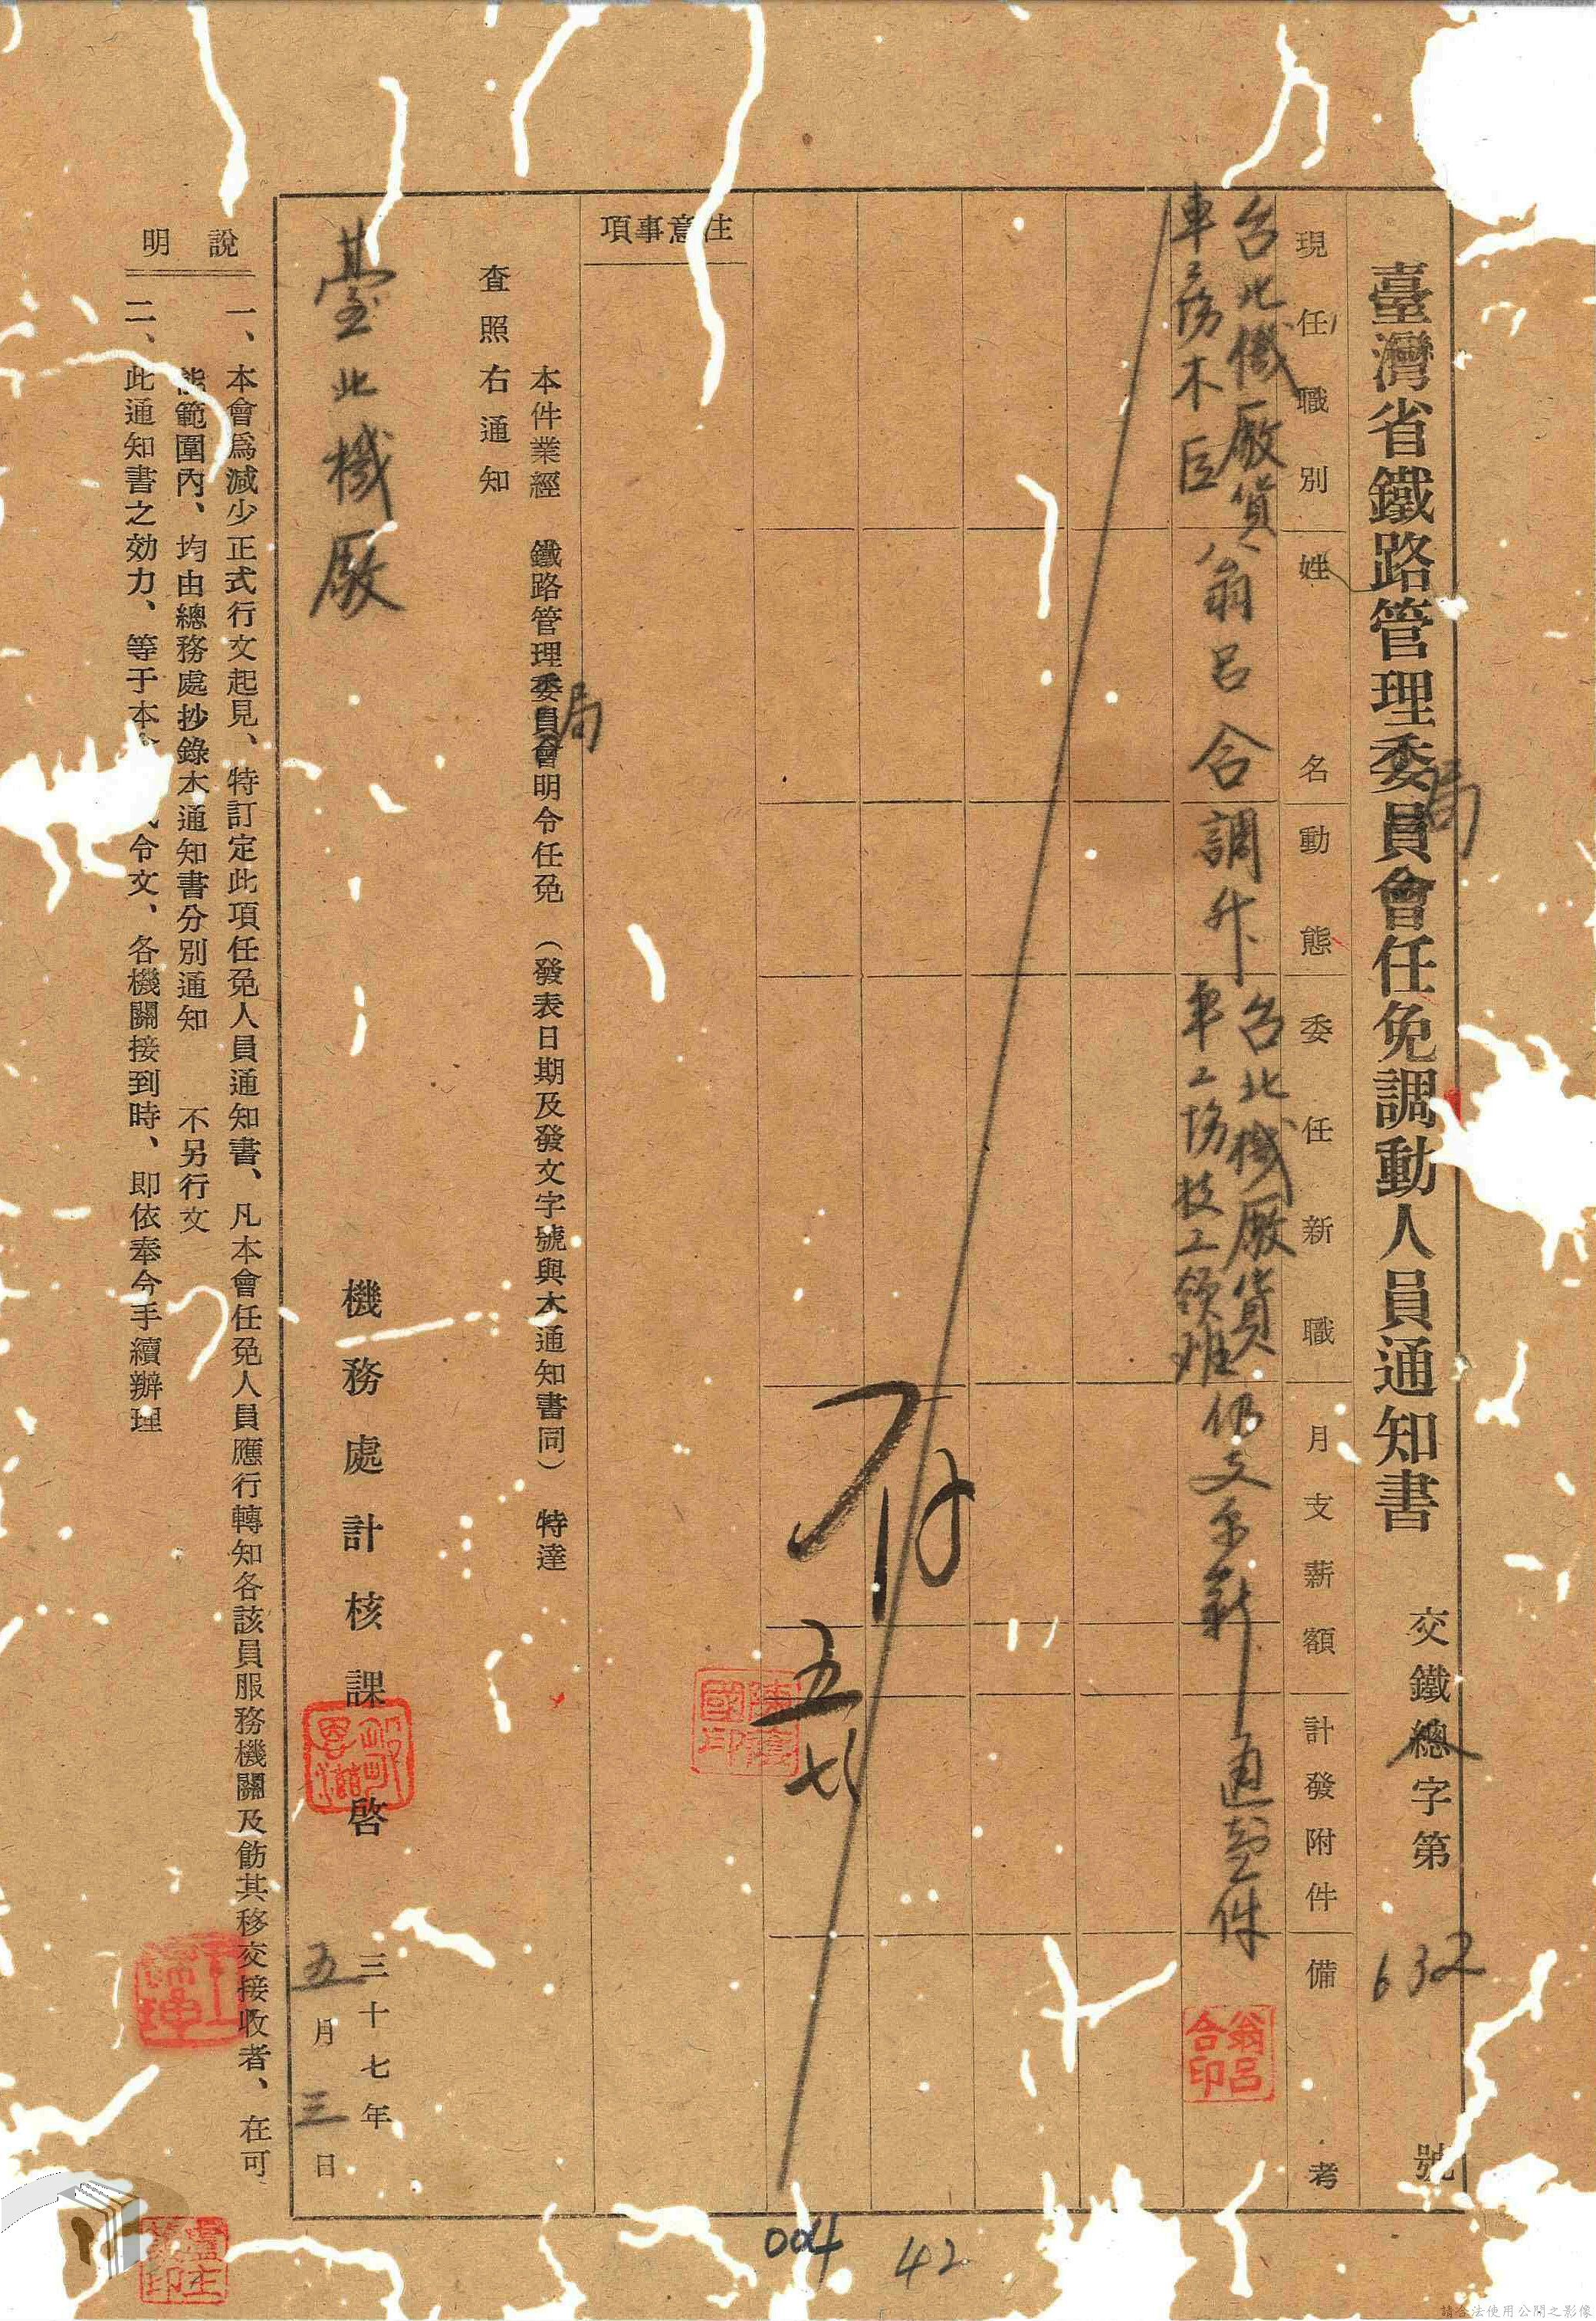 臺灣省鐵路管理委員會任免調動人員通知書 交鐵總字第 632 號
局
人
現任職別 姓名 動態 委任新職 月支薪額 計發附件 備考
台北機厰貨
車工場木匠
翁呂合
調升
台北機厰貨
車工場技工領班
仍支原薪
通知壹件
翁呂合印
注意事項
五
七
本件業經 鐵路管理委員會明令任免 (發表日期及發文字號與本通知書同) 特達
局
查照右通知
臺北機厰
機務處計核課啓
三十七年
五月三日
說明
一、本會爲減少正式行文起見、特訂定此項任免人員通知書、凡本會任免人員應行轉知各該員服務機關及飭其移交接收者、在可
能範圍內、均由總務處抄錄本通知書分別通知 不另行文
二、此通知書之効力、等于本 令文、各機關接到時、即依奉令手續辦理
004
42
請合法使用公開之影像